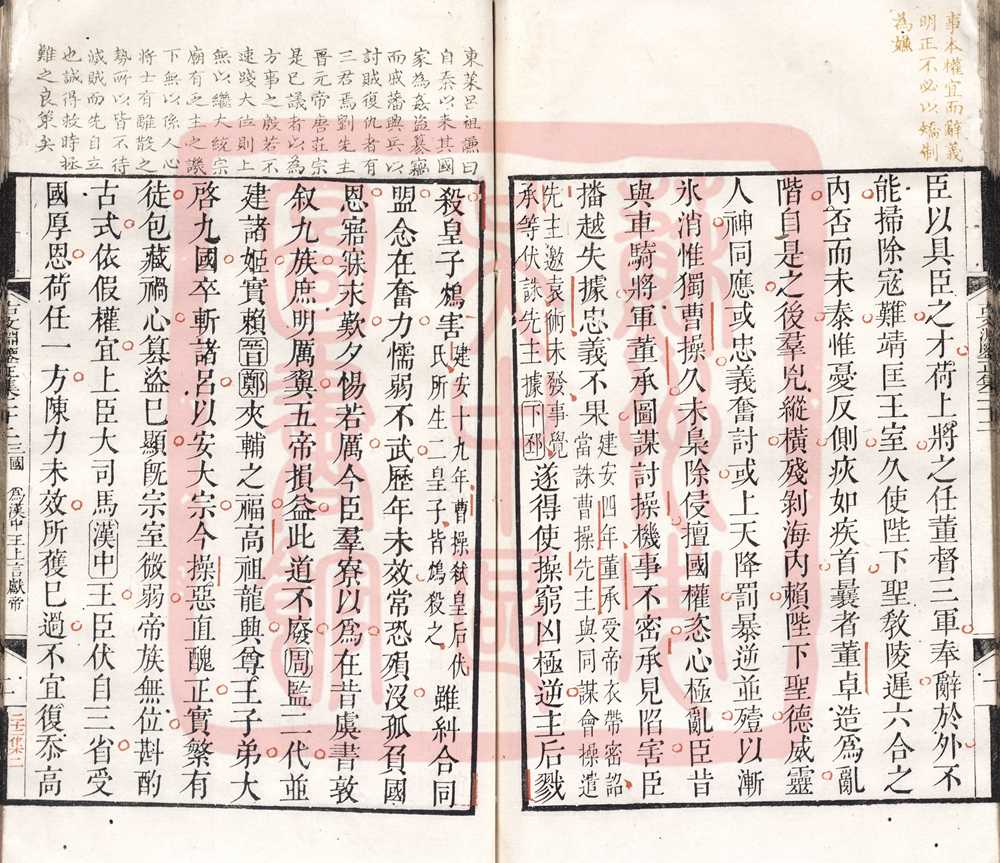 事本權宜而辭義
明正不必以矯制
為嫌
臣以具臣之才荷上將之任董督三軍奉辭於外不
能掃除寇難靖匡王室久使陛下聖敎陵遲六合之
內否而未泰惟憂反側疢如疾首曩者董卓造爲亂
階自是之後羣兇縱橫殘剝海內賴陛下聖德威靈
人神同應或忠義奮討或上天降罰暴逆並殪以漸
氷消惟獨曹操久未梟除侵擅國權恣心極亂臣昔
與車騎將軍董承圖謀討操機事不密承見陷害臣
播越失據忠義不果建安四年董承受帝衣帶密詔
當誅曹操先主與同謀會操遣
先主邀袁術未發事覺
承等伏誅先主據下邳遂得使操窮凶極逆主后戮
東萊呂祖謙曰
自秦以來其國
家為姦盜篡竊
而戚藩興兵以
討賊復仇者有
三君焉劉先主
晉元帝唐莊宗
是已議者以為
方事之殷若不
速踐大位則上
無以繼大統宗
廟有乏主之譏
下無以係人心
將士有離散之
勢所以皆不待
滅賊而先自立
也誠得救時拯
難之良策矣
殺皇子鴆害建安十九年曹操弒皇后伏
氏所生二皇子皆鴆殺之雖糾合同
盟念在奮力懦弱不武歷年未效常恐殞沒孤負國
恩寤寐永歎夕惕若厲今臣羣寮以爲在昔虞書敦
叙九族庶明厲翼五帝損益此道不廢周監二代並
建諸姬實賴晉鄭夾輔之福高祖龍興尊王子弟大
啓九國卒斬諸呂以安大宗今操惡直醜正實繁有
徒包藏禍心篡盜已顯旣宗室微弱帝族無位斟酌
古式依假權宜上臣大司馬漢中王臣伏自三省受
國厚恩荷任一方陳力未效所獲已過不宜復忝高
三國
爲漢中王上言獻帝